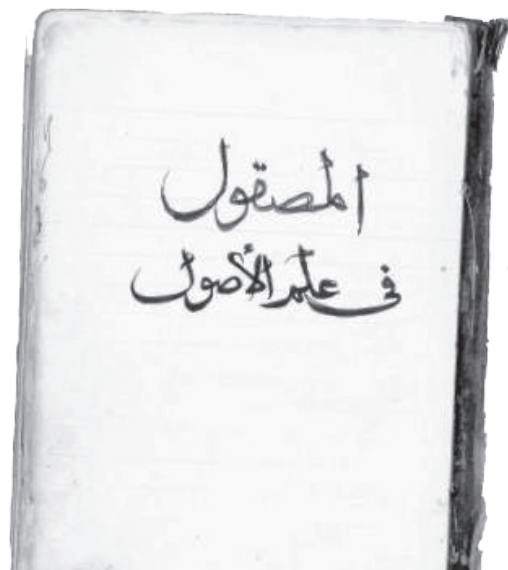 المصقول
في علم الأصول